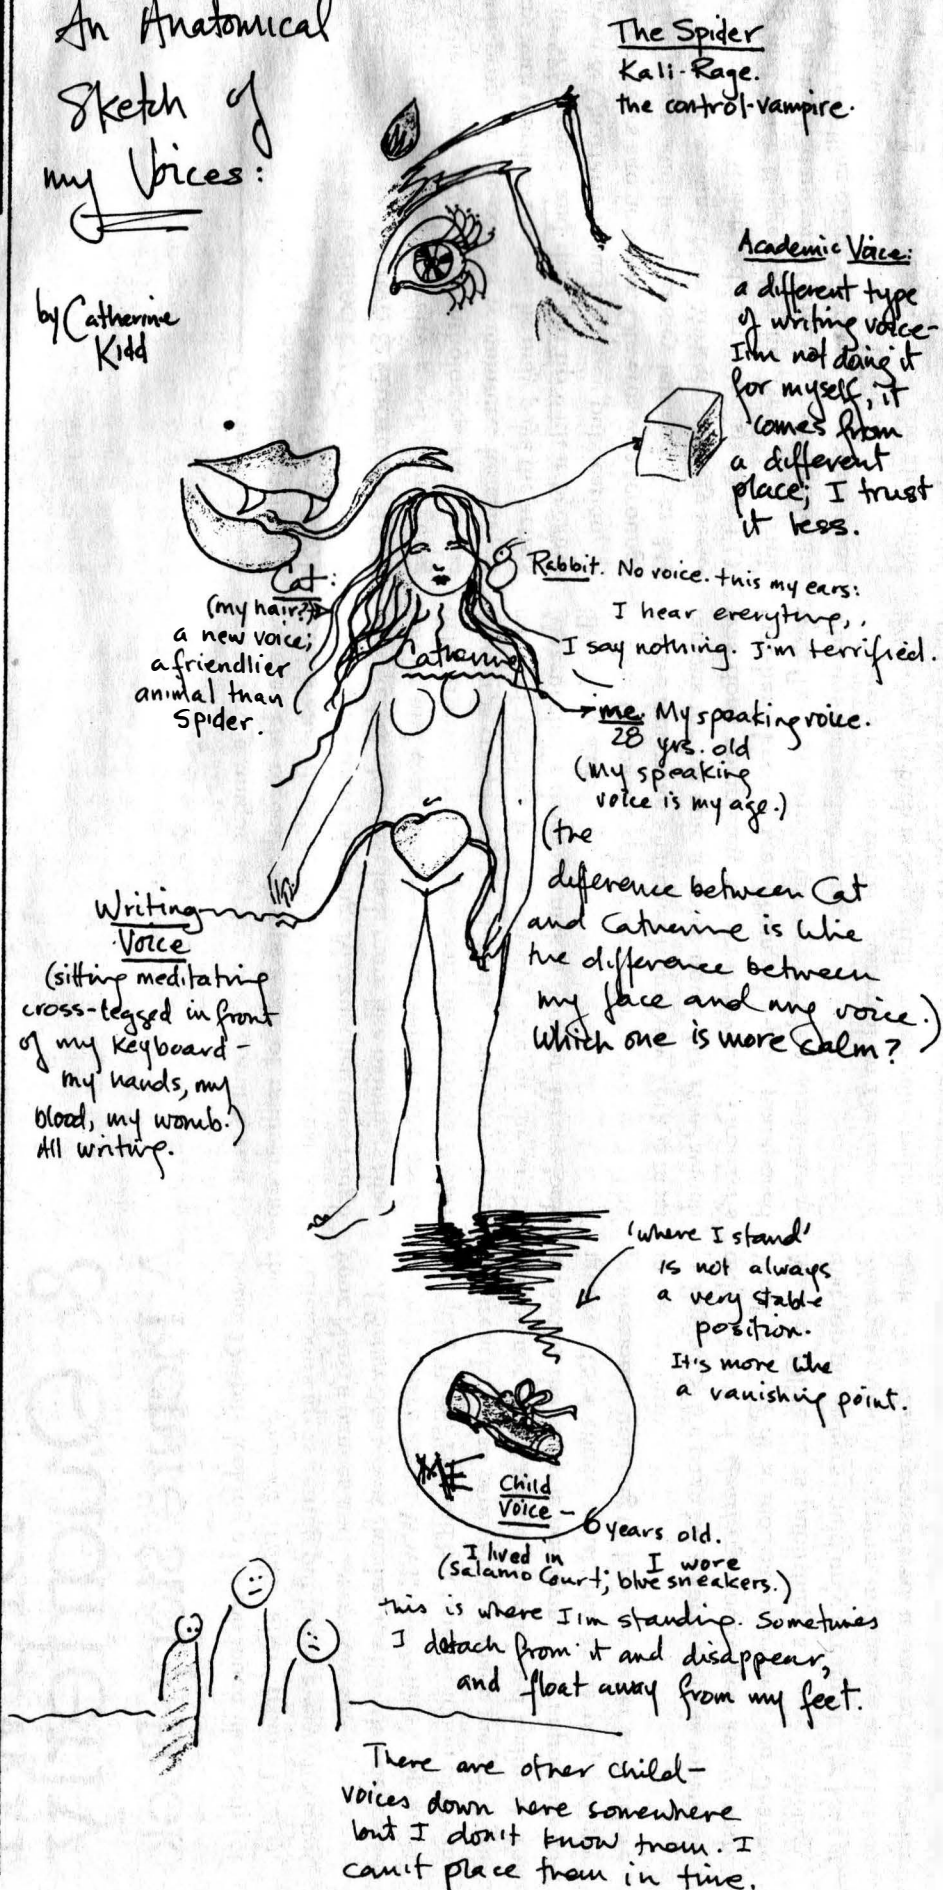 An Anatomical
Sketch of
my Voices:
by Catherine
Kidd
The Spider
Kali-Rage.
the control-vampire.
Academic Voice:
a different type
of writing voice-
I'm not doing it
for myself, it
comes from
a different
place; I trust
it less.
Cat:
(my hair?)
a new voice;
a friendlier
animal than
Spider.
Rabbit. No voice. this my ears:
I hear everything,,
I say nothing. I'm terrified.
Catherine
me. My speaking voice.
28 yrs. old
(my speaking
voice is my age.)
(the
difference between Cat
and Catherine is like
the difference between
my face and my voice.)
Which one is more calm?
Writing
Voice
(sitting meditating
cross-legged in front
of my keyboard-
my hands, my
blood, my womb.)
All writing.
'where I stand'
is not always
a very stable
position.
It's more like
a vanishing point.
ME
Child
Voice - 6 years old.
I lived in I wore
(Salamo Court; blue sneakers.)
this is where I'm standing. Sometimes
I detach from it and disappear,
and float away from my feet.
There are other child-
voices down here somewhere
but I don't know them. I
can't place them in time.